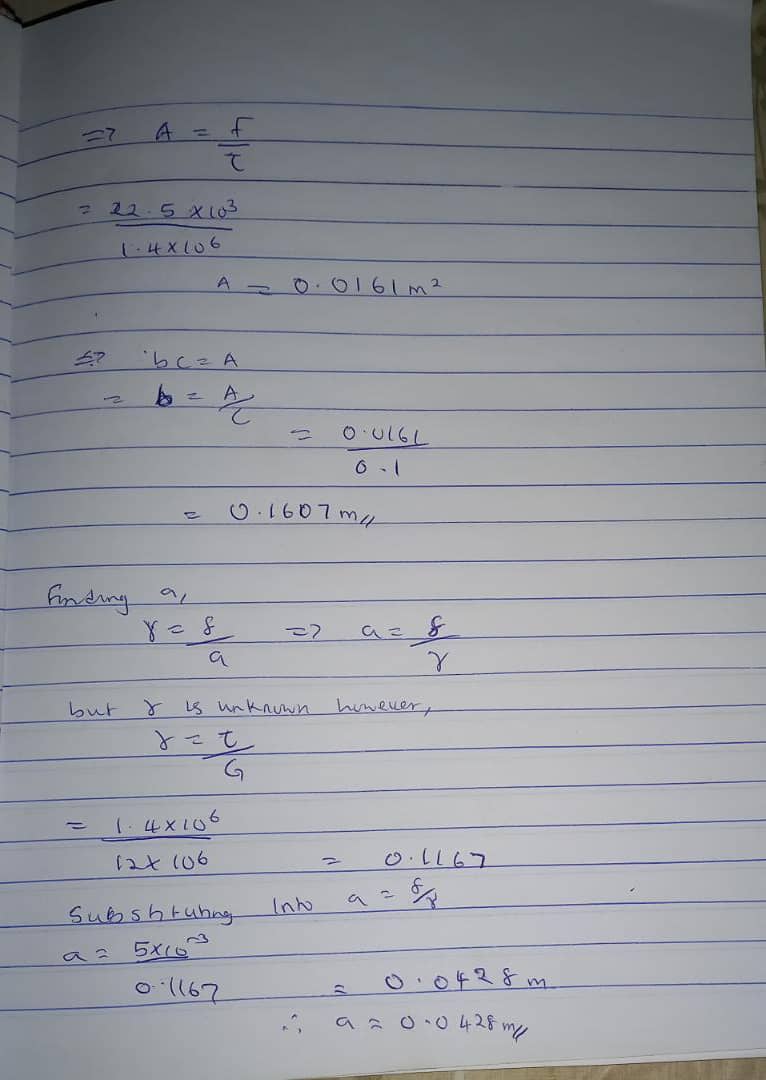 => A = f/τ
= 22.5 x10³ / 1.4x10⁶
A = 0.0161m²
=> bc = A
= b = A/c
= 0.0161 / 0.1
= 0.1607m//
finding a,
γ = δ/a => a = δ/γ
but γ is unknown however,
γ = τ/G
= 1.4x10⁶ / 12x10⁶ = 0.1167
Substituting Into a = δ/γ
a = 5x10⁻³ / 0.1167 = 0.0428m
∴ a = 0.0428m//